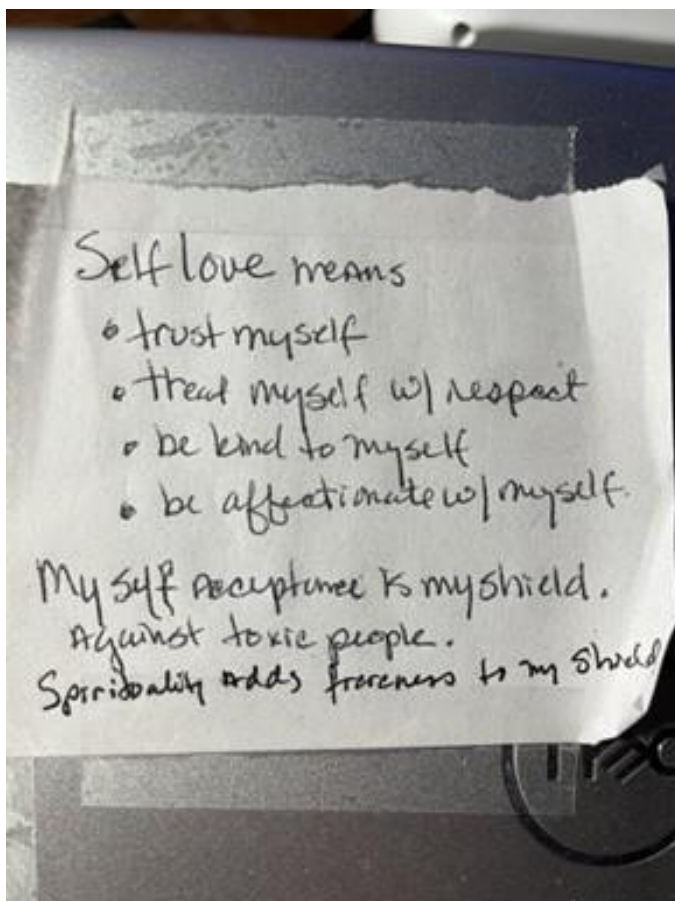 Self love means
• trust myself
• treat myself w/ respect
• be kind to myself
• be affectionate w/ myself.
My self acceptance is my shield.
Against toxic people.
Spirituality adds to my shield